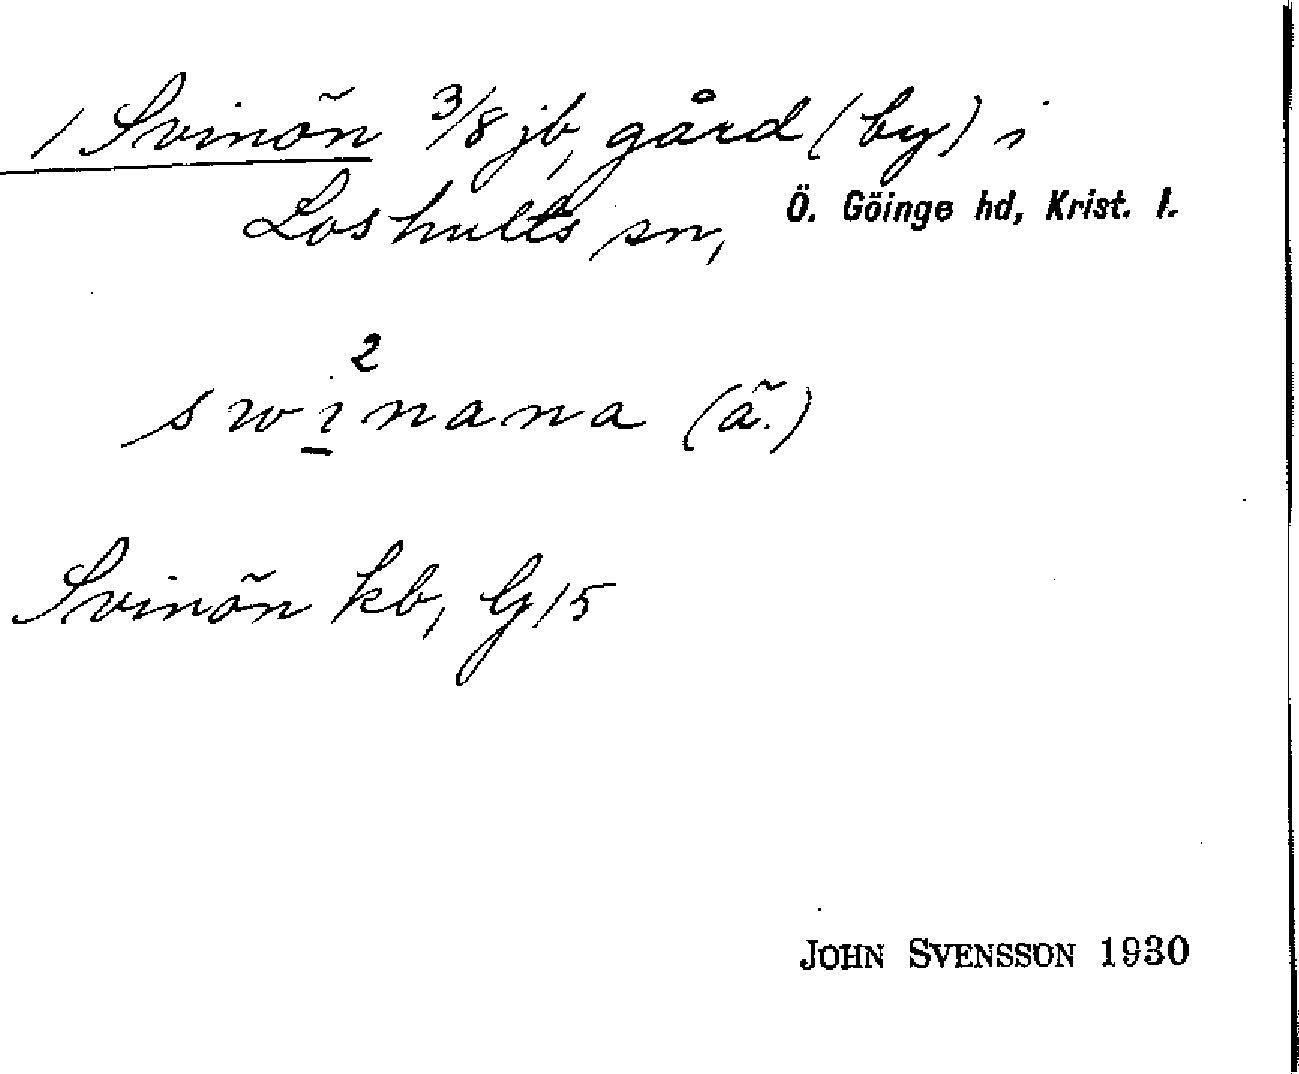 1 Svinön 3/8 jb, gård (by) i
Loshults sn, Ö. Göinge hd, Krist. l.
2
swinana (ä.)
Svinön kb, G 15
JOHN SVENSSON 1930